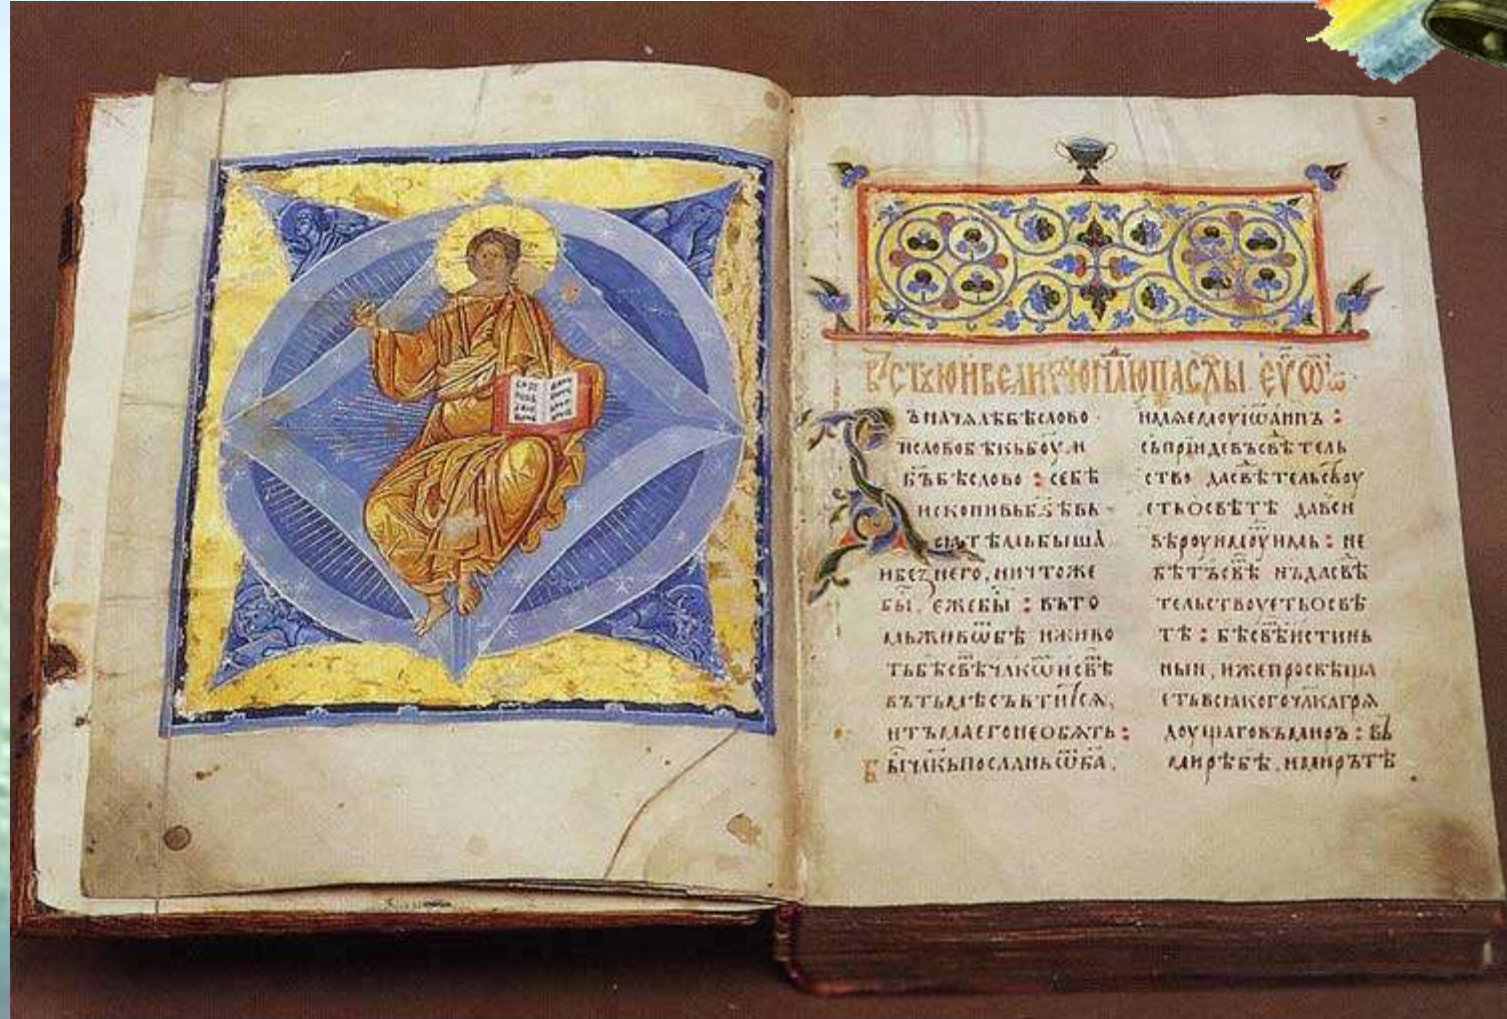 Въ ст҃ꙋю и великꙋю нⷣлю пасхы. еѵⷢ ѿ іѡ
Въначалѣбѣслово ·
ислово бѣкъбоу. и
б҃ъбѣслово : себѣ
исконивь
сѧтѣмьбышѧ
ибезнего. ничтоже
бы. ежебы : въто
мьживѡⷮбѣ иживо
тъбѣсвѣⷮчл҃кѡⷨисвѣⷮ
вътьмѣсвѣтитⷭсѧ,
итъмаегонеобѧтъ :
Бычл҃къпосланъѿб҃а.
имѧемоуіѡаннъ :
сьпріидевъсвѣтель
ство дасвѣтельсⷮвоу
етьосвѣтѣ давси
вѣроуимоуимь : не
бѣтъсвѣⷮ нъдасвѣ
тельствоуетьосвѣ
тѣ : бѣсвѣⷮистинь
ныи, ижепросвѣща
етьвсѧкогочл҃кагрѧ
доущаговъмиръ : въ
мирѣбѣ, имирътѣ